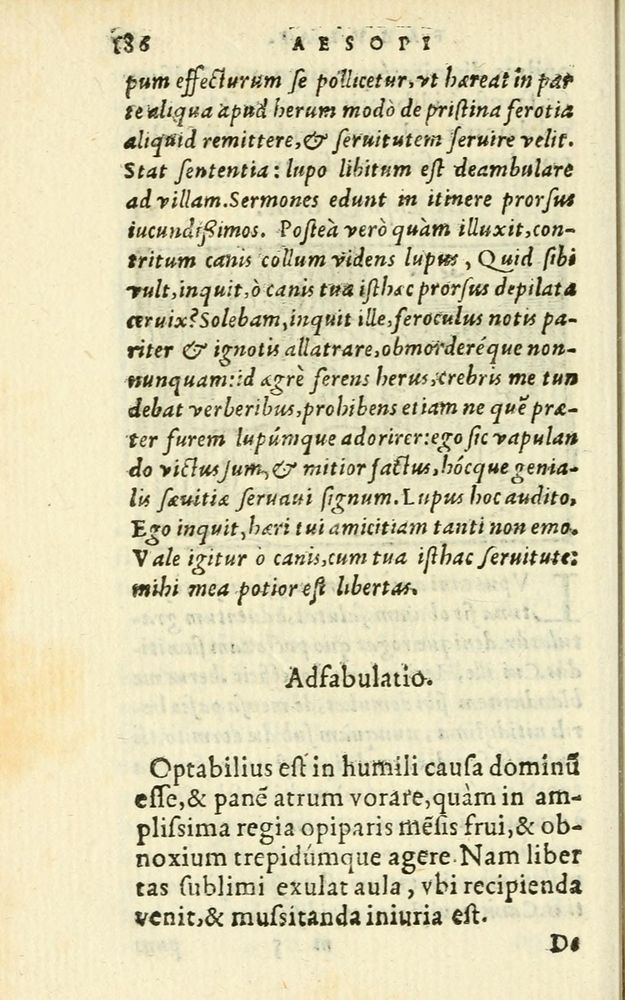 186 AESOPI
pum effecturum se pollicetur, vt hæreat in par
te aliqua apud herum modò de pristina ferotia
aliquid remittere, & seruitutem seruire velit.
Stat sententia: lupo libitum est deambulare
ad villam. Sermones edunt in itinere prorsus
iucundißimos. Posteà verò quàm illuxit, con-
tritum canis collum videns lupus, Quid sibi
vult, inquit, ò canis tua isthæc prorsus depilata
ceruix? Solebam, inquit ille, feroculus notis pa-
riter & ignotis allatrare, obmorderéque non-
nunquam: id ægrè ferens herus, crebris me tun
debat verberibus, prohibens etiam ne quē præ-
ter furem lupúmque adorirer: ego sic vapulan
do victus sum, & mitior factus, hócque genia-
lis sæuitiæ seruaui signum. Lupus hoc audito,
Ego inquit, hæri tui amicitiam tanti non emo.
Vale igitur ò canis, cum tua isthac seruitute:
mihi mea potior est libertas.
Adfabulatio.
Optabilius est in humili causa dominū
esse, & panē atrum vorare, quàm in am-
plissima regia opiparis mēsis frui, & ob-
noxium trepidúmque agere. Nam liber
tas sublimi exulat aula, vbi recipienda
venit, & mussitanda iniuria est.
De